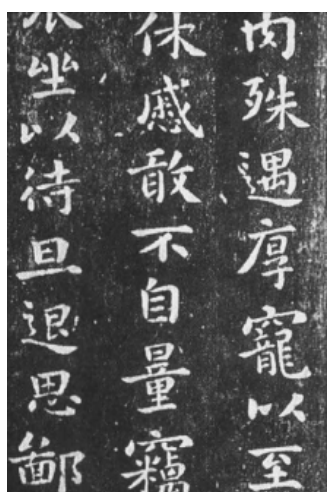 肉殊遇厚寵以至
休戚敢不自量竊
坐以待旦退思鄙